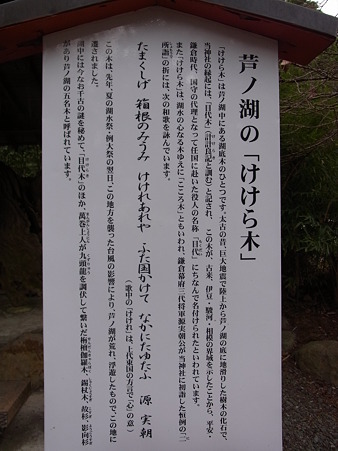 芦ノ湖の「けけら木」
「けけら木」は芦ノ湖中にある湖底木のひとつです。太古の昔、巨大地震で陸上から芦ノ湖の底に地滑りした樹木の化石で、
当神社の縁起には、「目代木」と記され、この木が、古来、伊豆・駿河・相模の界域を示したことから、平安・
鎌倉時代、国守の代理となって任国に赴いた役人の名称、「目代」にちなんで名付けられたといわれています。
また「けけら木」は、湖水の心なる木ゆえに「こころ木」ともいわれ、鎌倉幕府三代将軍源実朝公が当神社に初詣した恒例の「二
所詣」の折には、次の和歌を詠んでいます。
たまくしげ 箱根のみうみ けけれあれや ふた国かけて なかにたゆたふ 源 実朝
(歌中の「けけれ」は、上代東国の方言で「心」の意)
この木は、先年、夏の湖水祭・例大祭の翌日、この地方を襲った台風の影響により、芦ノ湖が荒れ、浮遊したもので、この地に
遷されました。
湖中には今なお千古の謎を秘めて、「目代木」のほか、萬巻上人が九頭龍を調伏して繋いだ栴檀伽羅木、錫杖木、故杉、影向杉
があり芦ノ湖の五名木と呼ばれています。